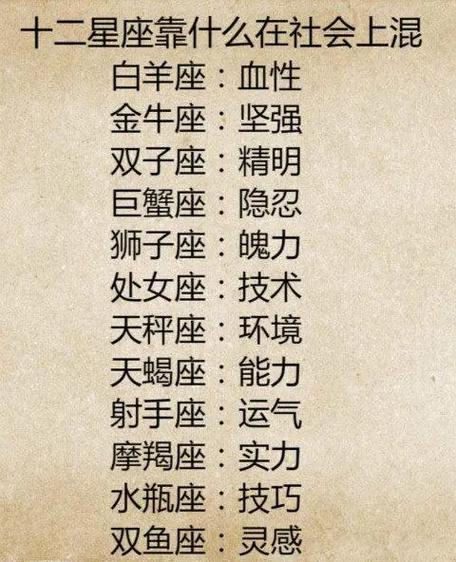 十二星座靠什么在社会上混
白羊座：血性
金牛座：坚强
双子座：精明
巨蟹座：隐忍
狮子座：魄力
处女座：技术
天秤座：环境
天蝎座：能力
射手座：运气
摩羯座：实力
水瓶座：技巧
双鱼座：灵感